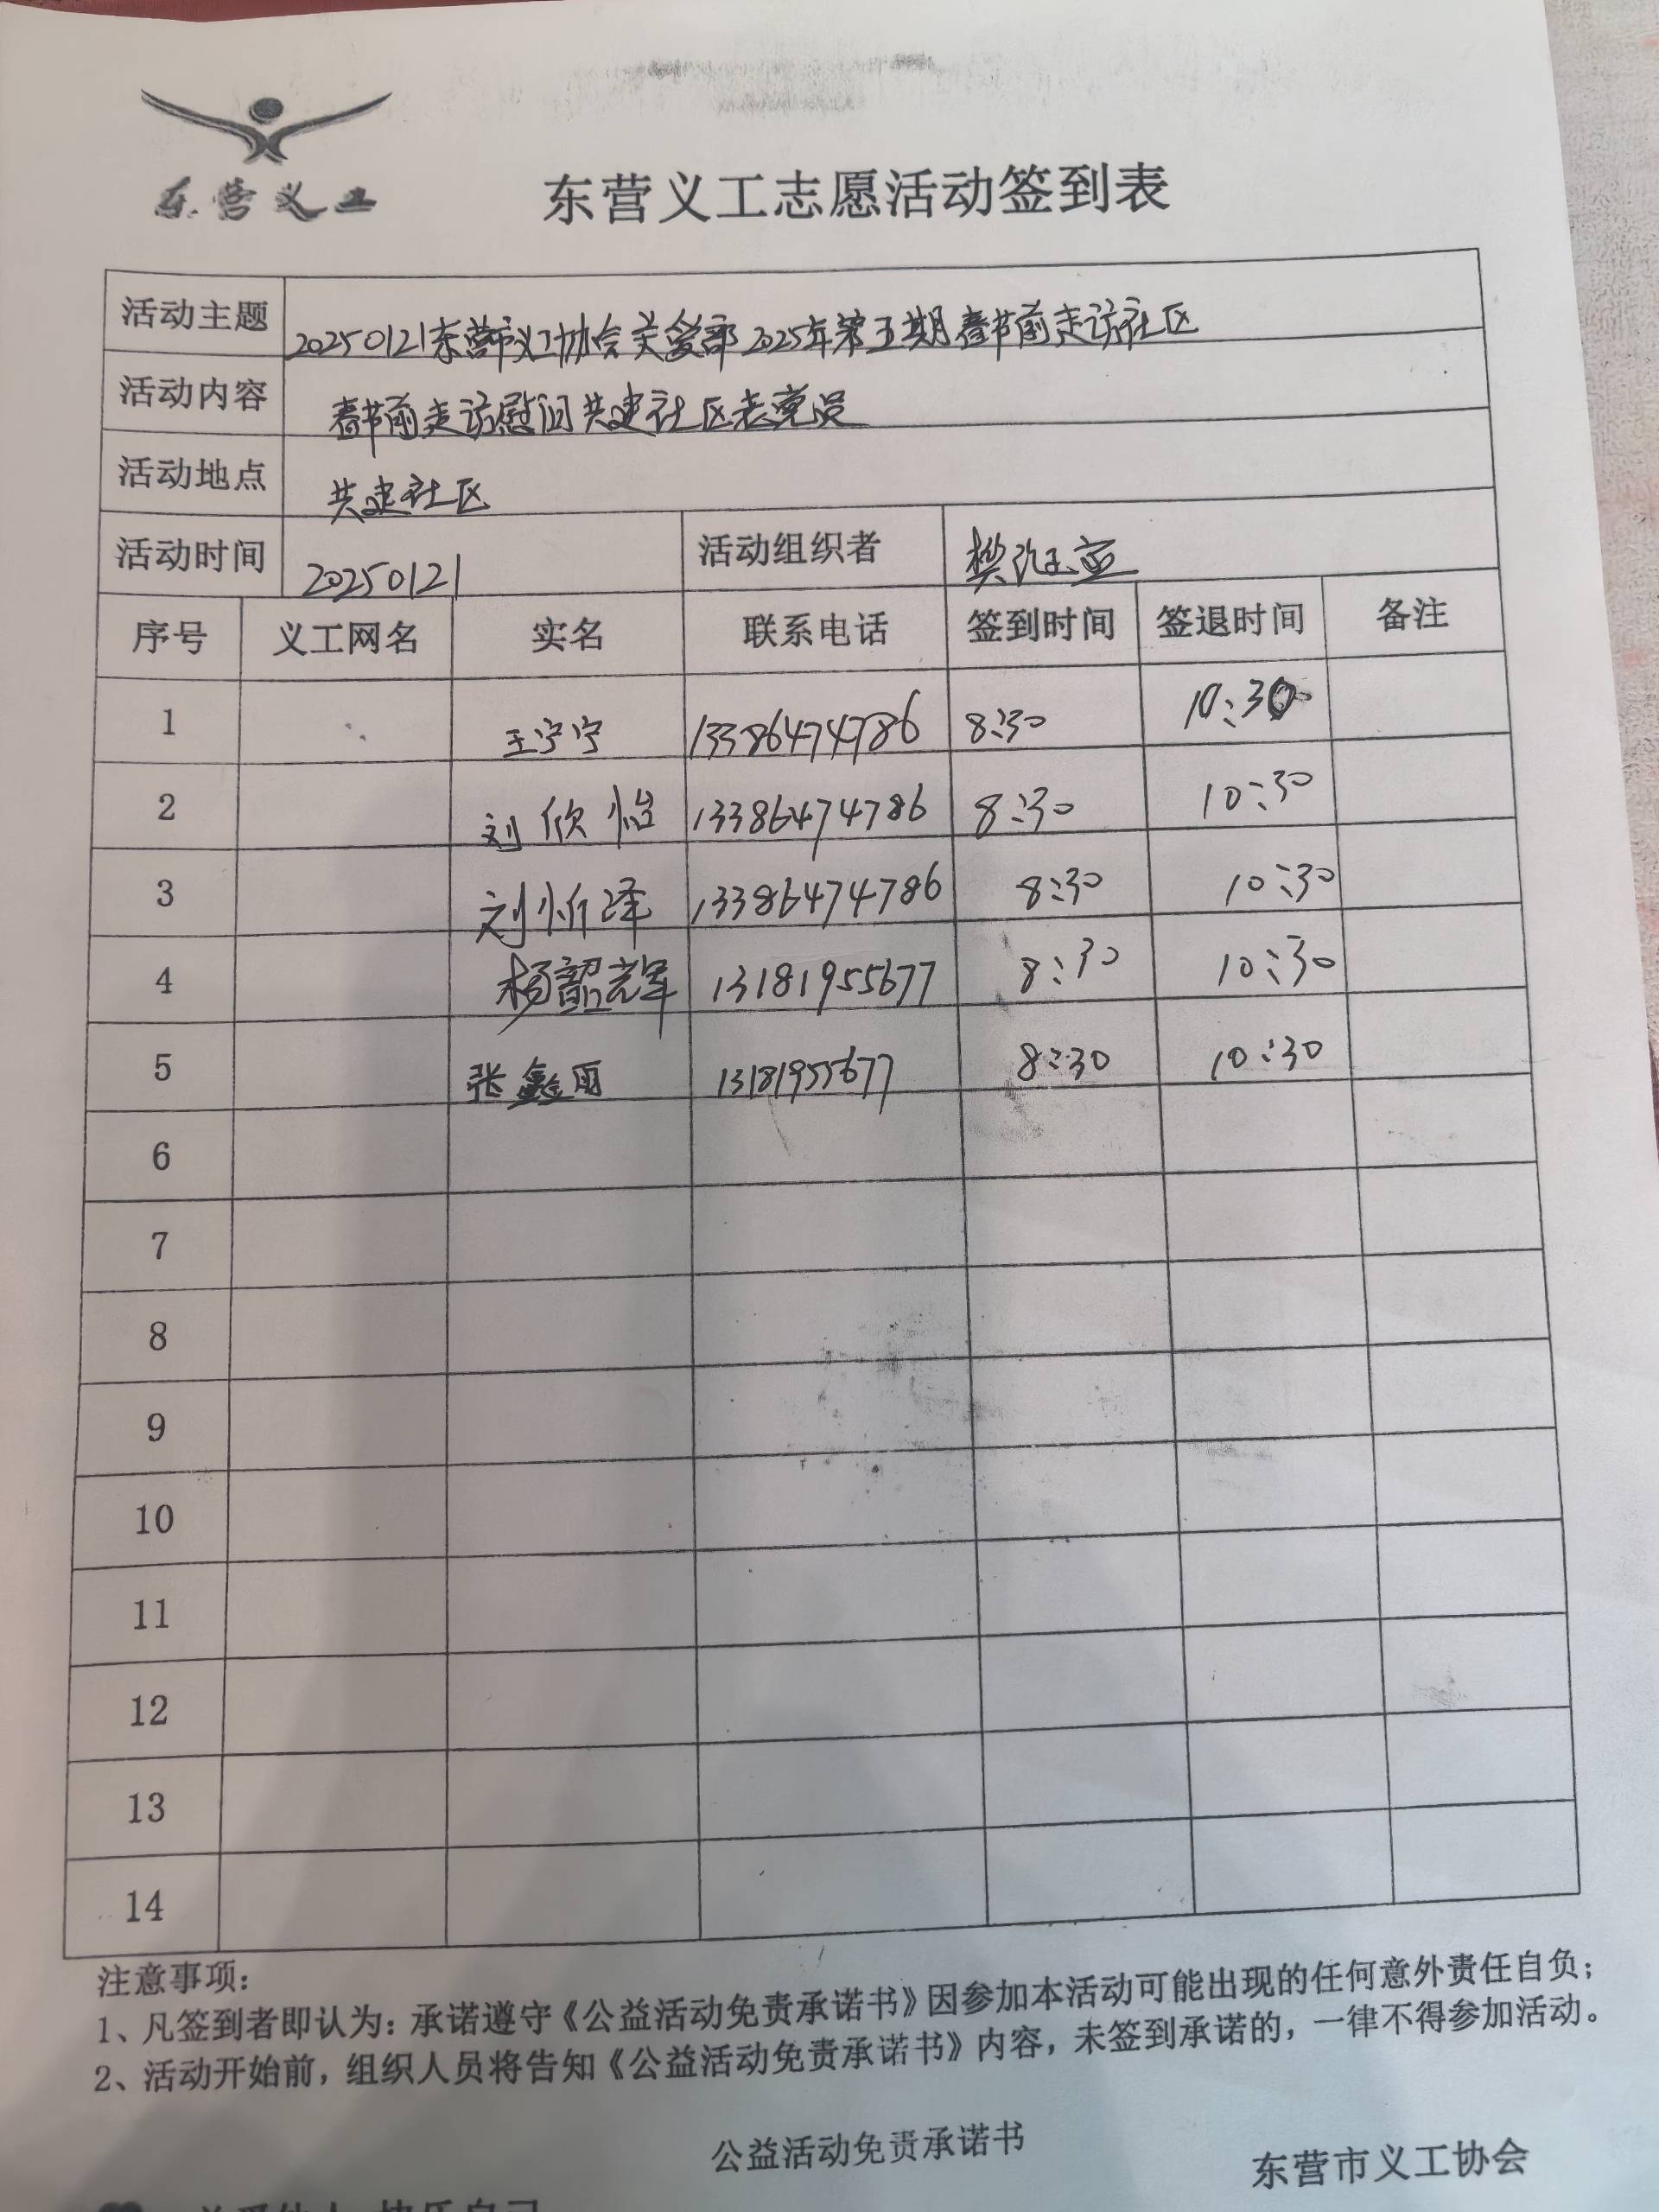 东营义工
东营义工志愿活动签到表
活动主题 20250121东营市义工协会关爱部2025年第五期春节前走访社区
活动内容 春节前走访慰问共建社区老党员
活动地点 共建社区
活动时间 20250121 活动组织者 樊
序号 义工网名 实名 联系电话 签到时间 签退时间 备注
1 王宁宁 13386474786 8:30 10:30
2 刘欣怡 13386474786 8:30 10:30
3 刘忻泽 13386474786 8:30 10:30
4 杨韶军 13181955677 8:30 10:30
5 张鑫雨 13181955677 8:30 10:30
6
7
8
9
10
11
12
13
14
注意事项:
1、凡签到者即认为:承诺遵守《公益活动免责承诺书》因参加本活动可能出现的任何意外责任自负;
2、活动开始前,组织人员将告知《公益活动免责承诺书》内容,未签到承诺的,一律不得参加活动。
公益活动免责承诺书
东营市义工协会